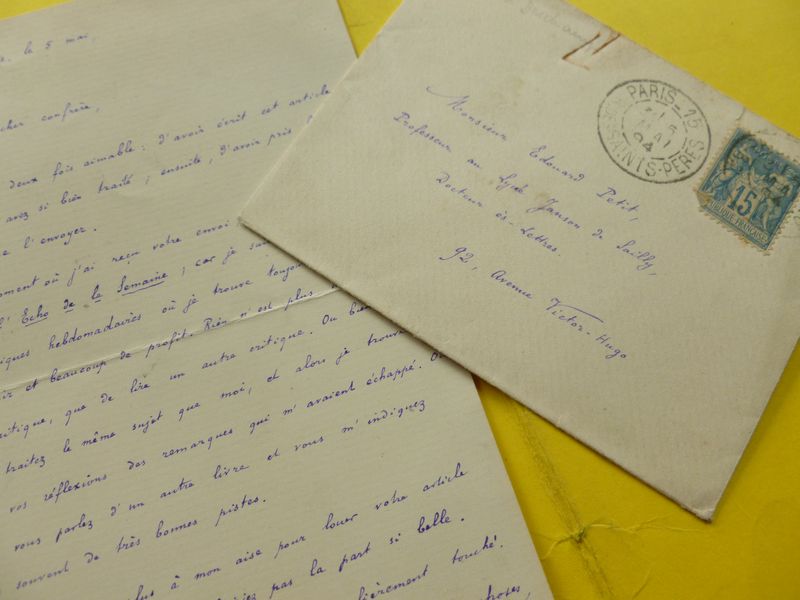 le 5 mai,
cher confrère,
deux fois aimable : d'avoir écrit cet article
avez si bien traité ; ensuite, d'avoir pris
l'envoyer.
moment où j'ai reçu votre envoi
l'Echo de la Semaine ; car je
hebdomadaires où je trouve
et beaucoup de profit. Rien n'est plus
critique, que de lire un autre critique. Ou bien
traitez le même sujet que moi, et alors je trouve
vos réflexions des remarques qui m'avaient échappé. Ou
vous parlez d'un autre livre et vous m'indiquez
souvent de très bonnes pistes.
à mon aise pour louer votre article
pas la part si belle.
touché.
Monsieur Edouard Petit,
Professeur au Lycée Janson de Sailly,
Docteur ès-Lettres
92, Avenue Victor-Hugo
PARIS-15
MAI
94
R. DES SAINTS-PERES
15
REPUBLIQUE FRANÇAISE